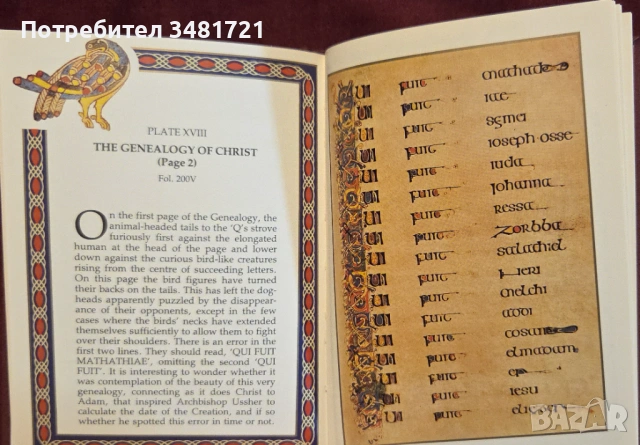 Потребител 3481721
PLATE XVIII
THE GENEALOGY OF CHRIST
(Page 2)
Fol. 200V
On the first page of the Genealogy, the
animal-headed tails to the 'Q's strove
furiously first against the elongated
human at the head of the page and lower
down against the curious bird-like creatures
rising from the centre of succeeding letters.
On this page the bird figures have turned
their backs on the tails. This has left the dog-
heads apparently puzzled by the disappear-
ance of their opponents, except in the few
cases where the birds' necks have extended
themselves sufficiently to allow them to fight
over their shoulders. There is an error in the
first two lines. They should read, 'QUI FUIT
MATHATHIAE', omitting the second 'QUI
FUIT'. It is interesting to wonder whether it
was contemplation of the beauty of this very
genealogy, connecting as it does Christ to
Adam, that inspired Archbishop Ussher to
calculate the date of the Creation, and if so
whether he spotted this error in time or not.
QUI fuit mathathi
QUI fuit iae
QUI fuit semei
QUI fuit ioseph osse
QUI fuit iuda
QUI fuit iohanna
QUI fuit ressa
QUI fuit zorbba
QUI fuit salathiel
QUI fuit neri
QUI fuit melchi
QUI fuit addi
QUI fuit cosam
QUI fuit elmadam
QUI fuit er
QUI fuit iesu
QUI fuit
BAZAR